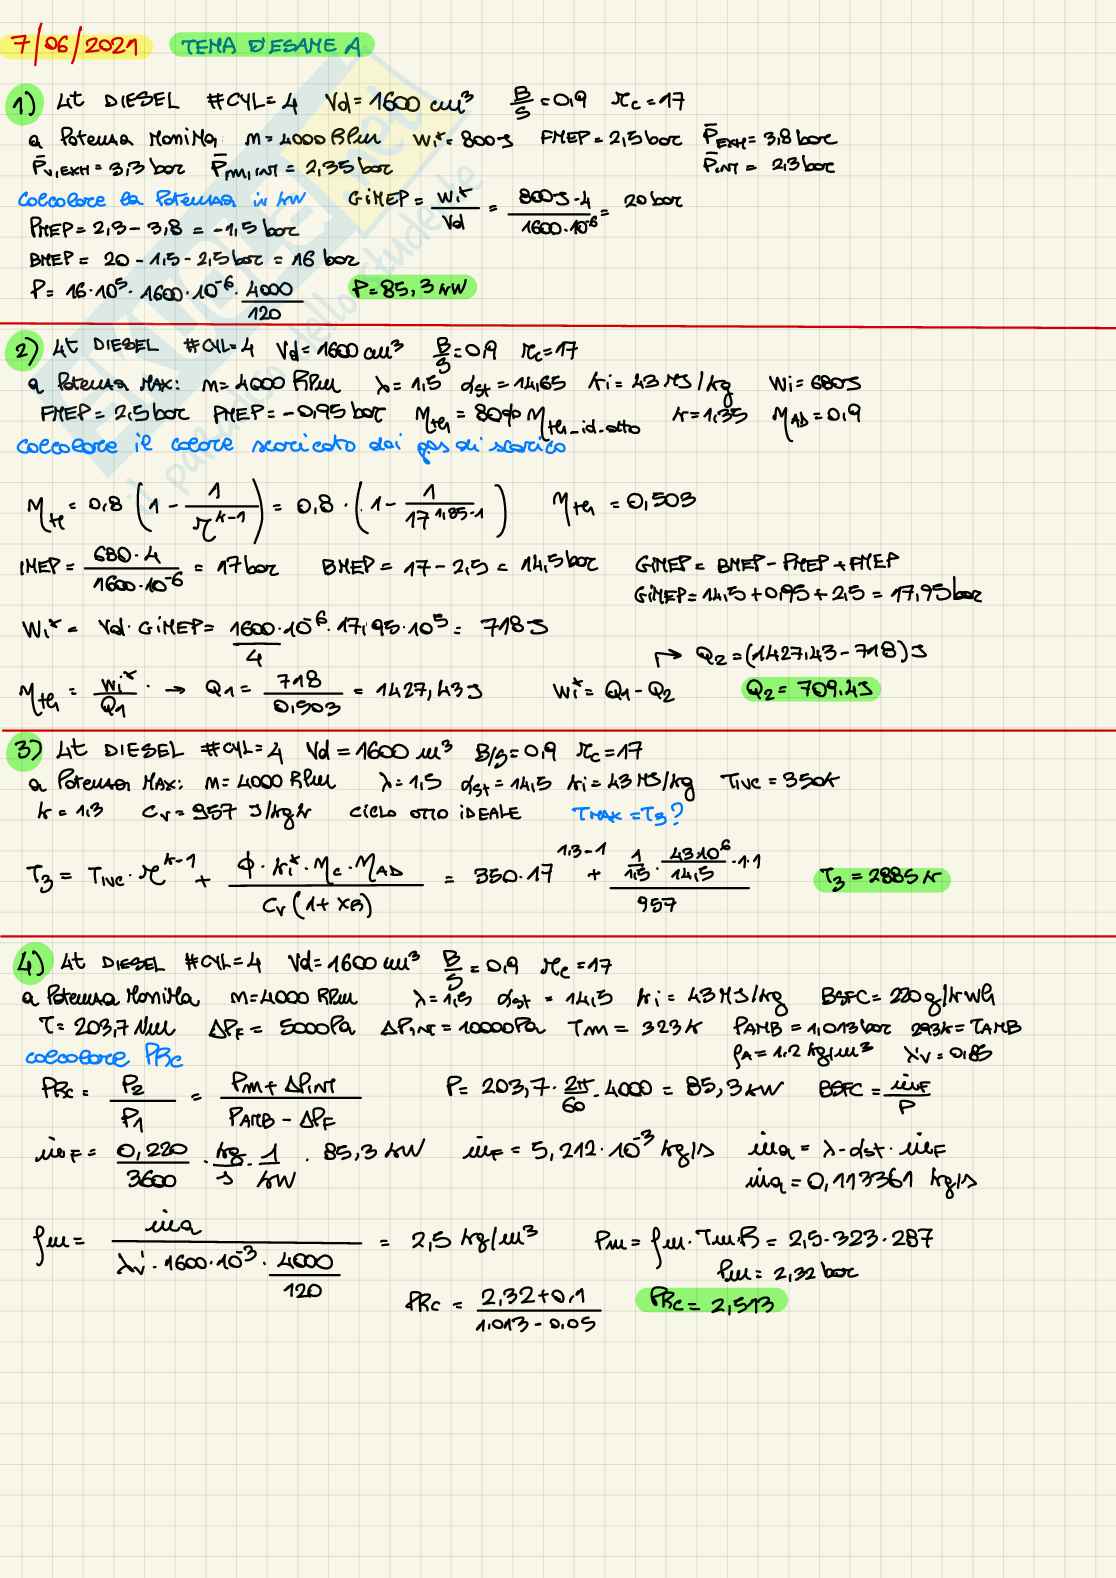 7/06/2021 TEMA D'ESAME A
1) 4t DIESEL #CYL=4 Vd=1600 cm³ B/S=0,9 rc=17
a Potenza Massima n=4000 RPM Wi*=800J FMEP=2,5bar P̄EXH=3,8bar
P̄v,EXH=3,3bar P̄m,INT=2,35bar P̄INT=2,3bar
Calcolare la Potenza in kW GIMEP=Wi*/Vd=800J·4/1600·10⁻⁶=20bar
PMEP=2,3-3,8=-1,5bar
BMEP=20-1,5-2,5bar=16bar
P=16·10⁵·1600·10⁻⁶·4000/120 P=85,3kW
2) 4t DIESEL #CYL=4 Vd=1600cm³ B/S=0,9 rc=17
a Potenza MAX: n=4000 RPM λ=1,5 αst=14,65 Ki=43MJ/kg Wi=680J
FMEP=2,5bar PMEP=-0,95bar ηth=80% ηth_id_otto k=1,35 ηAD=0,9
Calcolare il calore scaricato dai gas di scarico
ηth=0,8(1-1/r^k-1)=0,8·(1-1/17^1,35-1) ηth=0,503
IMEP=680·4/1600·10⁻⁶=17bar BMEP=17-2,5=14,5bar GIMEP=BMEP-PMEP+FMEP
GIMEP=14,5+0,95+2,5=17,95bar
Wi*=Vd·GIMEP=1600·10⁻⁶·17,95·10⁵/4=718J
↱ Q2=(1427,43-718)J
ηth=Wi*/Q1 · → Q1=718/0,503=1427,43J Wi*=Q1-Q2 Q2=709.4J
3) 4t DIESEL #CYL=4 Vd=1600 m³ B/S=0,9 rc=17
a Potenza MAX: n=4000 RPM λ=1,5 αst=14,5 Ki=43MJ/kg TIVC=350K
k=1,3 Cv=957 J/kgK CICLO OTTO IDEALE TMAX=T3?
T3=TIVC·r^k-1+ϕ·Ki*·ηc·ηAD/Cv(1+XB)=350·17^1,3-1+1/1,5·43·10⁶/14,5·1·1/957 T3=2885K
4) 4t DIESEL #CYL=4 Vd=1600cm³ B/S=0,9 rc=17
a Potenza Massima n=4000 RPM λ=1,5 αst=14,5 Ki=43MJ/kg BSFC=220g/kWh
T=203,7Nm ΔPF=5000Pa ΔPINT=10000Pa Tm=323K PAMB=1,013bar 293K=TAMB
ρA=1.2kg/m³ λ'v=0,85
Calcolare PRc
PRc=P2/P1=Pm+ΔPINT/PAMB-ΔPF P=203,7·2π/60·4000=85,3kW BSFC=ṁF/P
ṁF=0,220/3600·kg/s·1/kW·85,3kW ṁF=5,212·10⁻³kg/s ṁa=λ·αst·ṁF
ṁa=0,113361 kg/s
ρm=ṁa/λ'v·1600·10⁻³·4000/120=2,5kg/m³ Pm=ρm·Tm·R=2,5·323·287
Pm=2,32bar
PRc=2,32+0,1/1,013-0,05 PRc=2,513